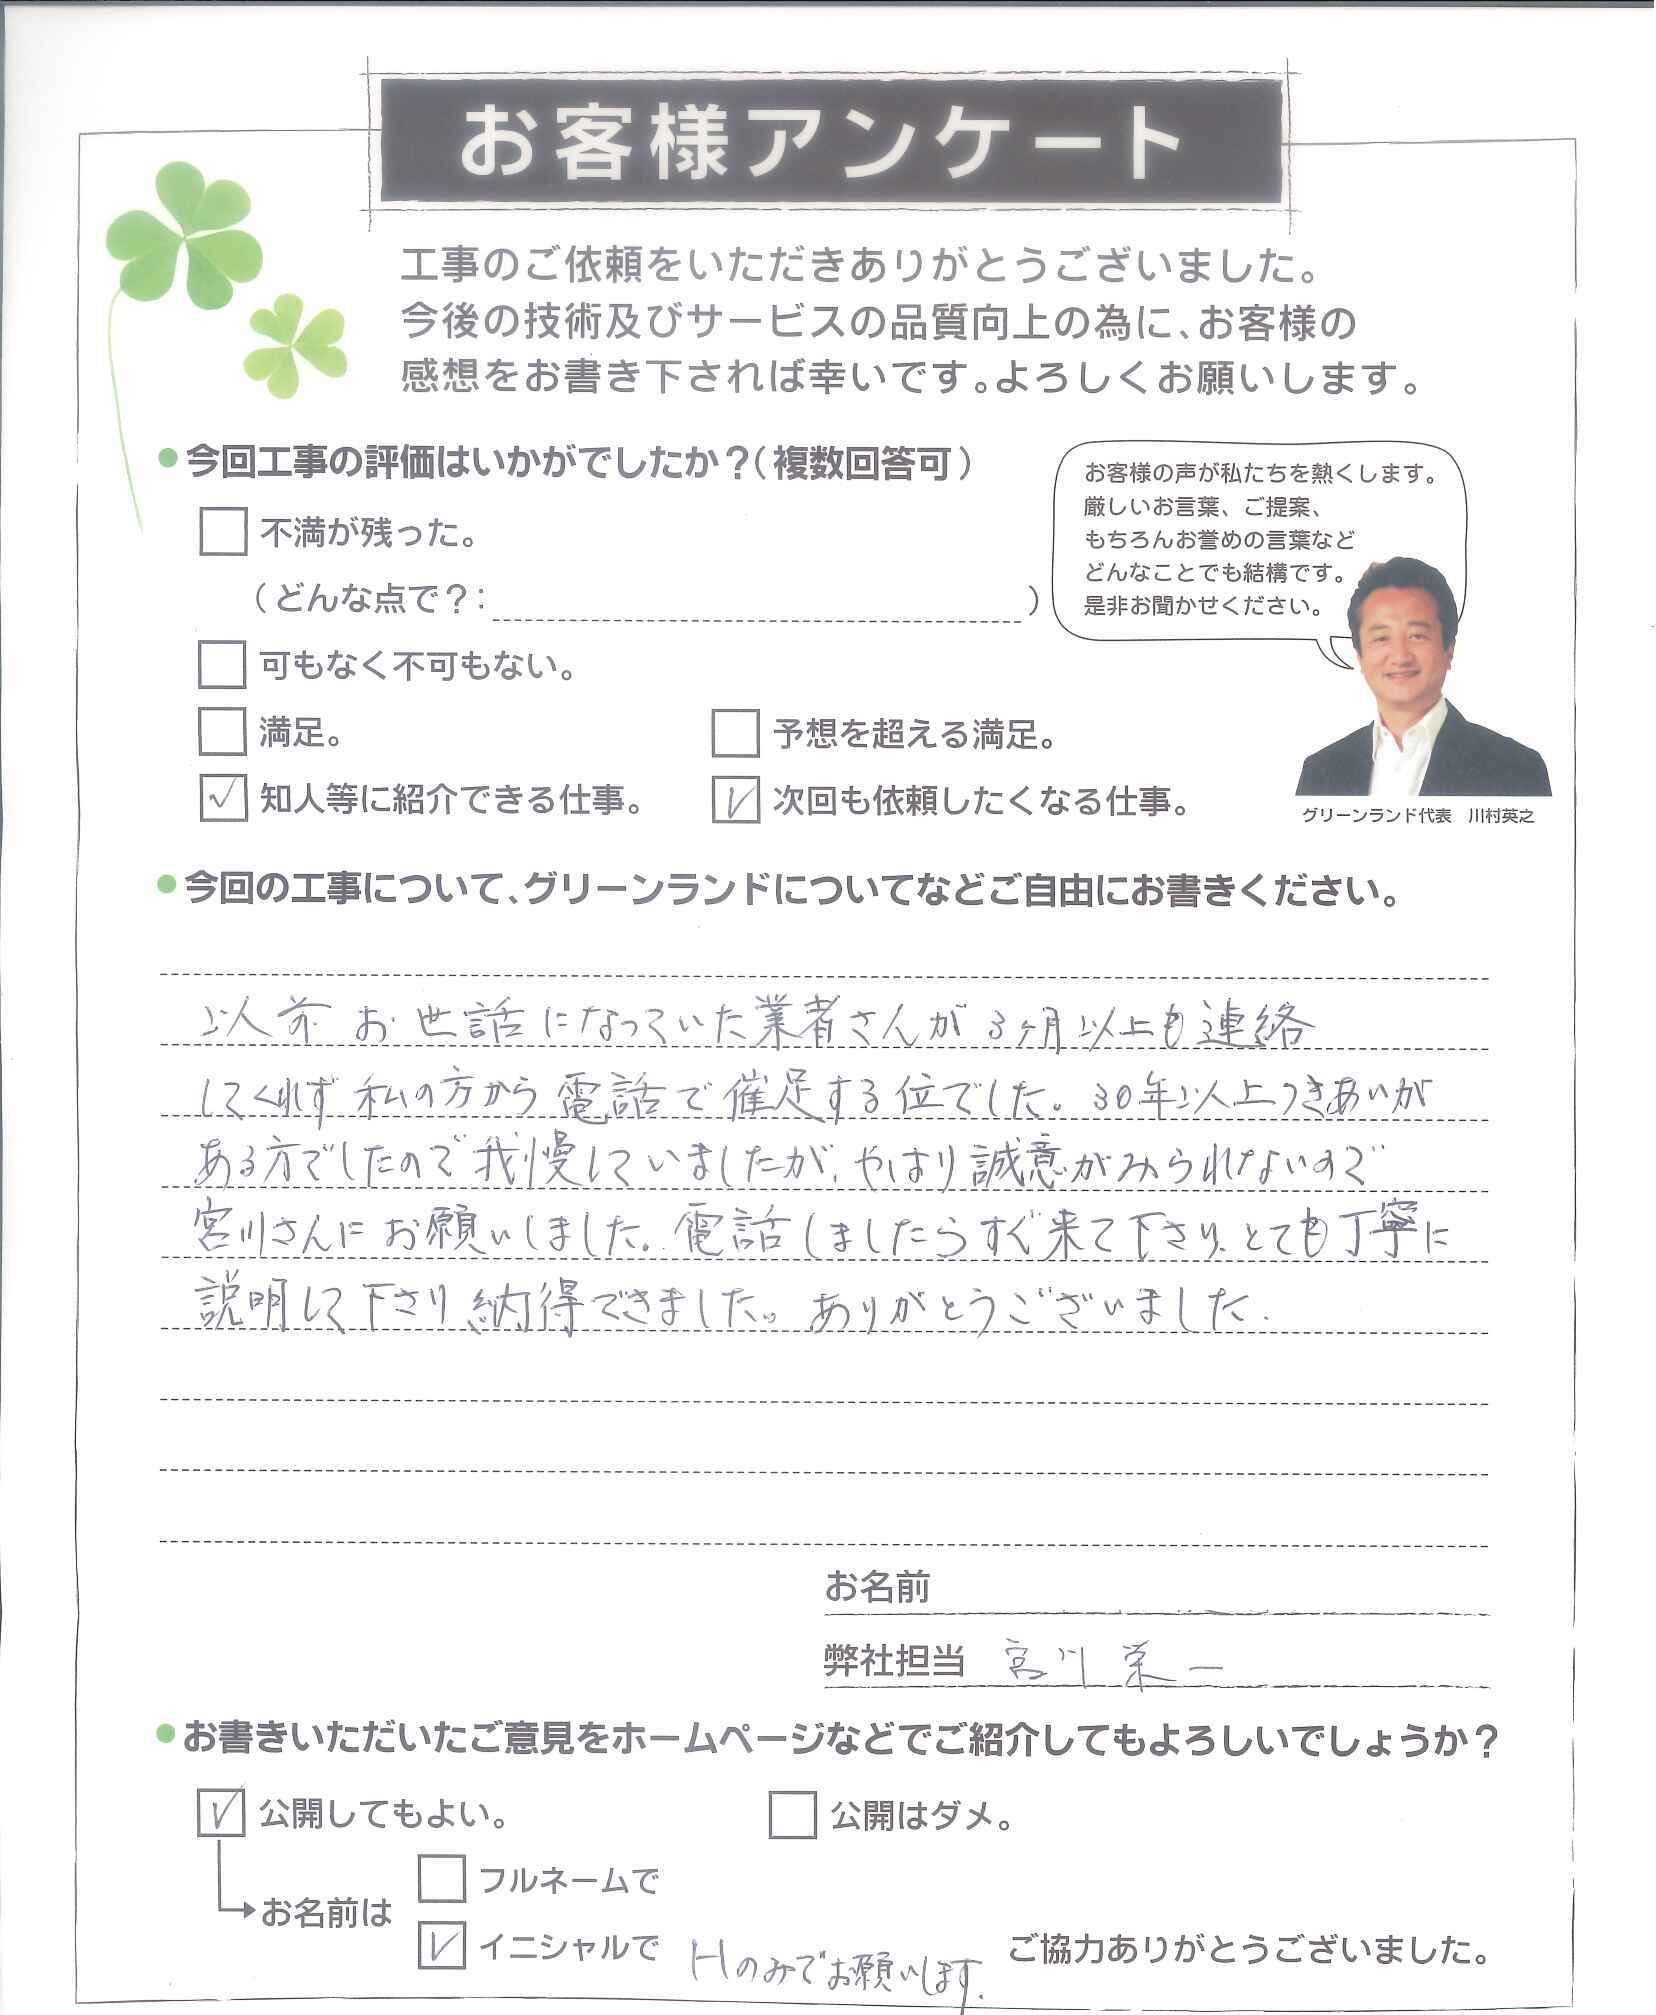 お客様アンケート
工事のご依頼をいただきありがとうございました。
今後の技術及びサービスの品質向上の為に、お客様の
感想をお書き下されば幸いです。よろしくお願いします。
●今回工事の評価はいかがでしたか？（複数回答可）
不満が残った。
（どんな点で？： ）
可もなく不可もない。
満足。 予想を超える満足。
✓ 知人等に紹介できる仕事。 ✓ 次回も依頼したくなる仕事。
お客様の声が私たちを熱くします。
厳しいお言葉、ご提案、
もちろんお誉めの言葉など
どんなことでも結構です。
是非お聞かせください。
グリーンランド代表 川村英之
●今回の工事について、グリーンランドについてなどご自由にお書きください。
以前お世話になっていた業者さんが3ヶ月以上も連絡
してくれず私の方から電話で催促する位でした。30年以上つきあいが
ある方でしたので我慢していましたが、やはり誠意がみられないので
宮川さんにお願いしました。電話しましたらすぐ来て下さり、とても丁寧に
説明して下さり納得できました。ありがとうございました.
お名前
弊社担当 宮川栄一
●お書きいただいたご意見をホームページなどでご紹介してもよろしいでしょうか？
✓ 公開してもよい。 公開はダメ。
お名前は
フルネームで
✓ イニシャルで Hのみでお願いします.
ご協力ありがとうございました。